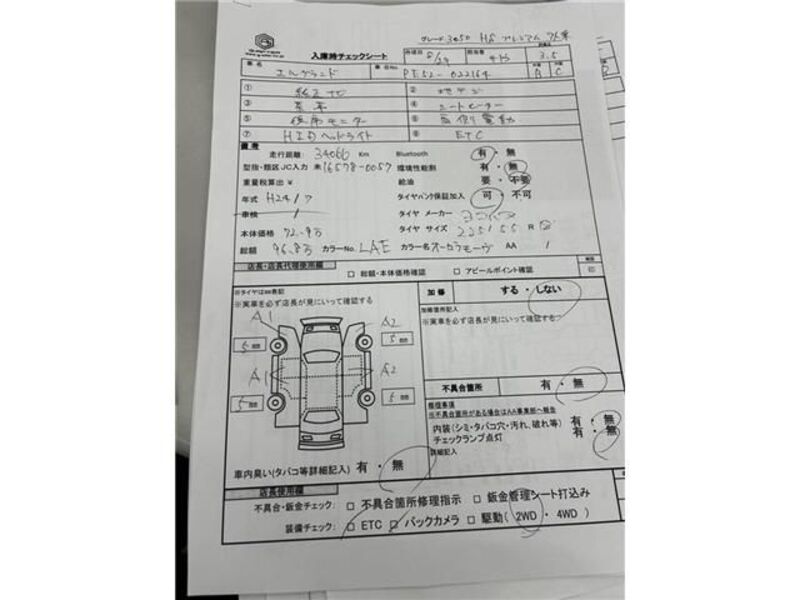 グレード 350 HS プレミアム
入庫時チェックシート 8/29 3.5
車名 エルグランド 車台No. PE52-022164 B C
① 純正ナビ ② 地デジ
③ 黒革 ④ シートヒーター
⑤ 後席モニター ⑥ 両側電動
⑦ HIDヘッドライト ⑧ ETC
備考
走行距離: 34066 Km Bluetooth 有・無
型指・類区JC入力 未 16578-0057 環境性能割 有・無
重量税算出 ¥ 給油 要・不要
年式 H24/7 タイヤパンク保証加入 可・不可
車検 / タイヤ メーカー ヨコハマ
本体価格 72.9万 タイヤ サイズ 225/55 R
総額 96.8万 カラーNo. LAE カラー名 オーロラモーヴ AA /
店長・店長代理使用欄 □ 総額・本体価格確認 □ アピールポイント確認
※実車を必ず店長が見にいって確認する
加修 する・しない
加修箇所記入
※実車を必ず店長が見にいって確認する
A1 A2
5 mm 5 mm
A1 A2
5 mm 5 mm
不具合箇所 有・無
※不具合箇所がある場合はAA事業部へ報告
内装(シミ・タバコ穴・汚れ、破れ等) 有・無
チェックランプ点灯 有・無
詳細記入
車内臭い(タバコ等詳細記入) 有・無
店長使用欄
不具合・鈑金チェック: □ 不具合箇所修理指示 □ 鈑金管理シート打込み
装備チェック: □ ETC □ バックカメラ □ 駆動(2WD・4WD)